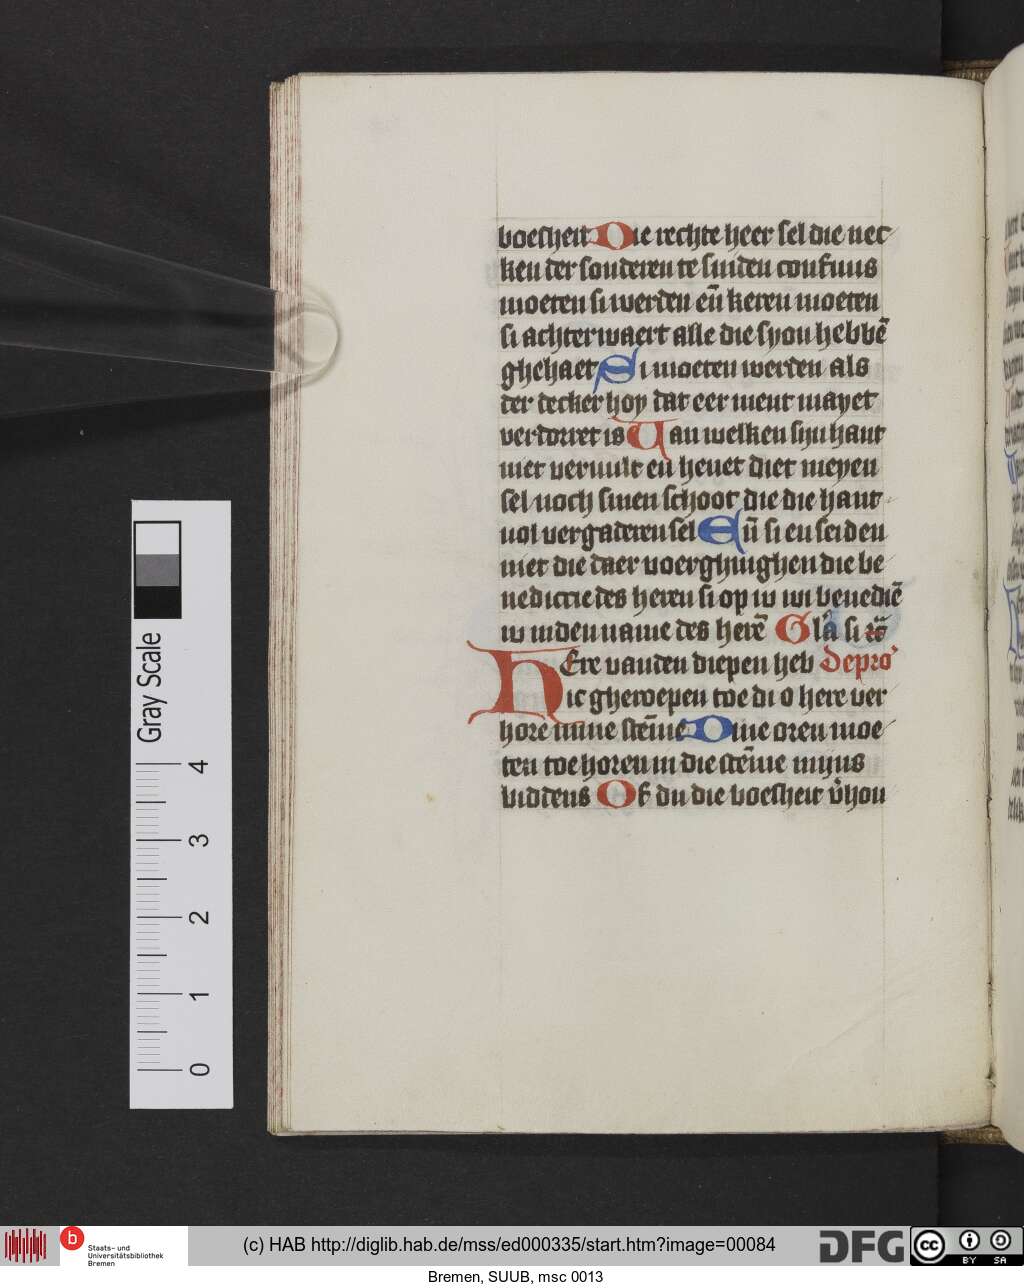 boesheit Die rechte heer sel die nec
ken der sonderen te sniden confuus
moeten si werden eñ keren moeten
si achterwaert alle die syon hebbẽ
ghehaet Si moeten werden als
der decker hoy dat eer ment mayet
verdorret is Van welken sijn hant
niet vervult en hevet diet meyen
sel noch sinen schoot die die hant
vol vergaderen sel Eñ si en seiden
niet die daer voerghinghen die be
nedictie des heren si op iv wi benediẽ
iv inden name des herẽ Gl'a si
HEre vanden diepen heb Depro'
ic gheroepen toe di o here ver
hore mine stẽme Dine oren moe
ten toe horen in die stẽme mijns
biddens Of du die boesheit v'hou
Gray Scale
4
3
2
1
0
b
Staats- und
Universitätsbibliothek
Bremen
(c) HAB http://diglib.hab.de/mss/ed000335/start.htm?image=00084
DFG
cc
BY SA
Bremen, SUUB, msc 0013